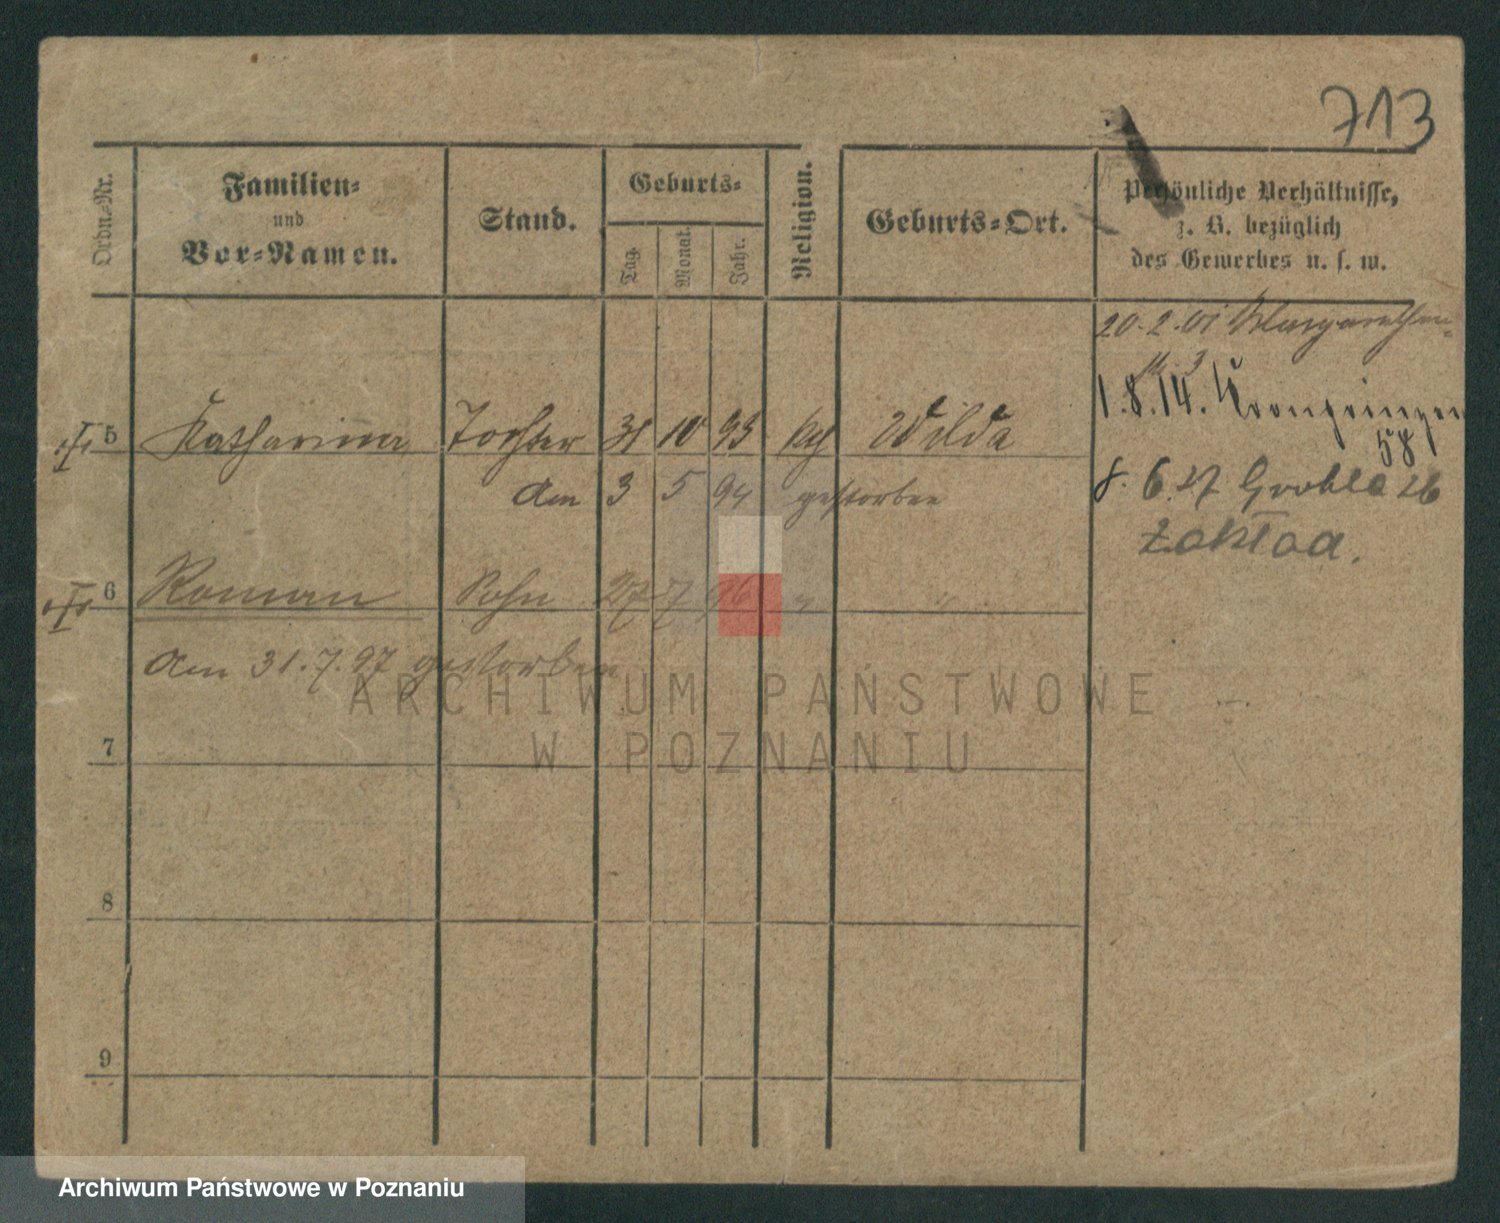 713
Ordn.-Nr.
Familien-
und
Vor-Namen.
Stand.
Geburts-
Tag.
Monat.
Jahr.
Religion.
Geburts-Ort.
Persönliche Verhältnisse,
z. B. bezüglich
des Gewerbes u. s. w.
20.2.01 Margarethen-
3
1.8.14. Kronprinzen
58
5 Katharina Tochter 31 10 93 kth Wilda
am 3 5 94 gestorben
8.6.27 Grobla 26
Zakład.
6 Roman Sohn 27 7 96 " "
am 31.7.97 gestorben
7
8
9
ARCHIWUM PAŃSTWOWE
W POZNANIU
Archiwum Państwowe w Poznaniu